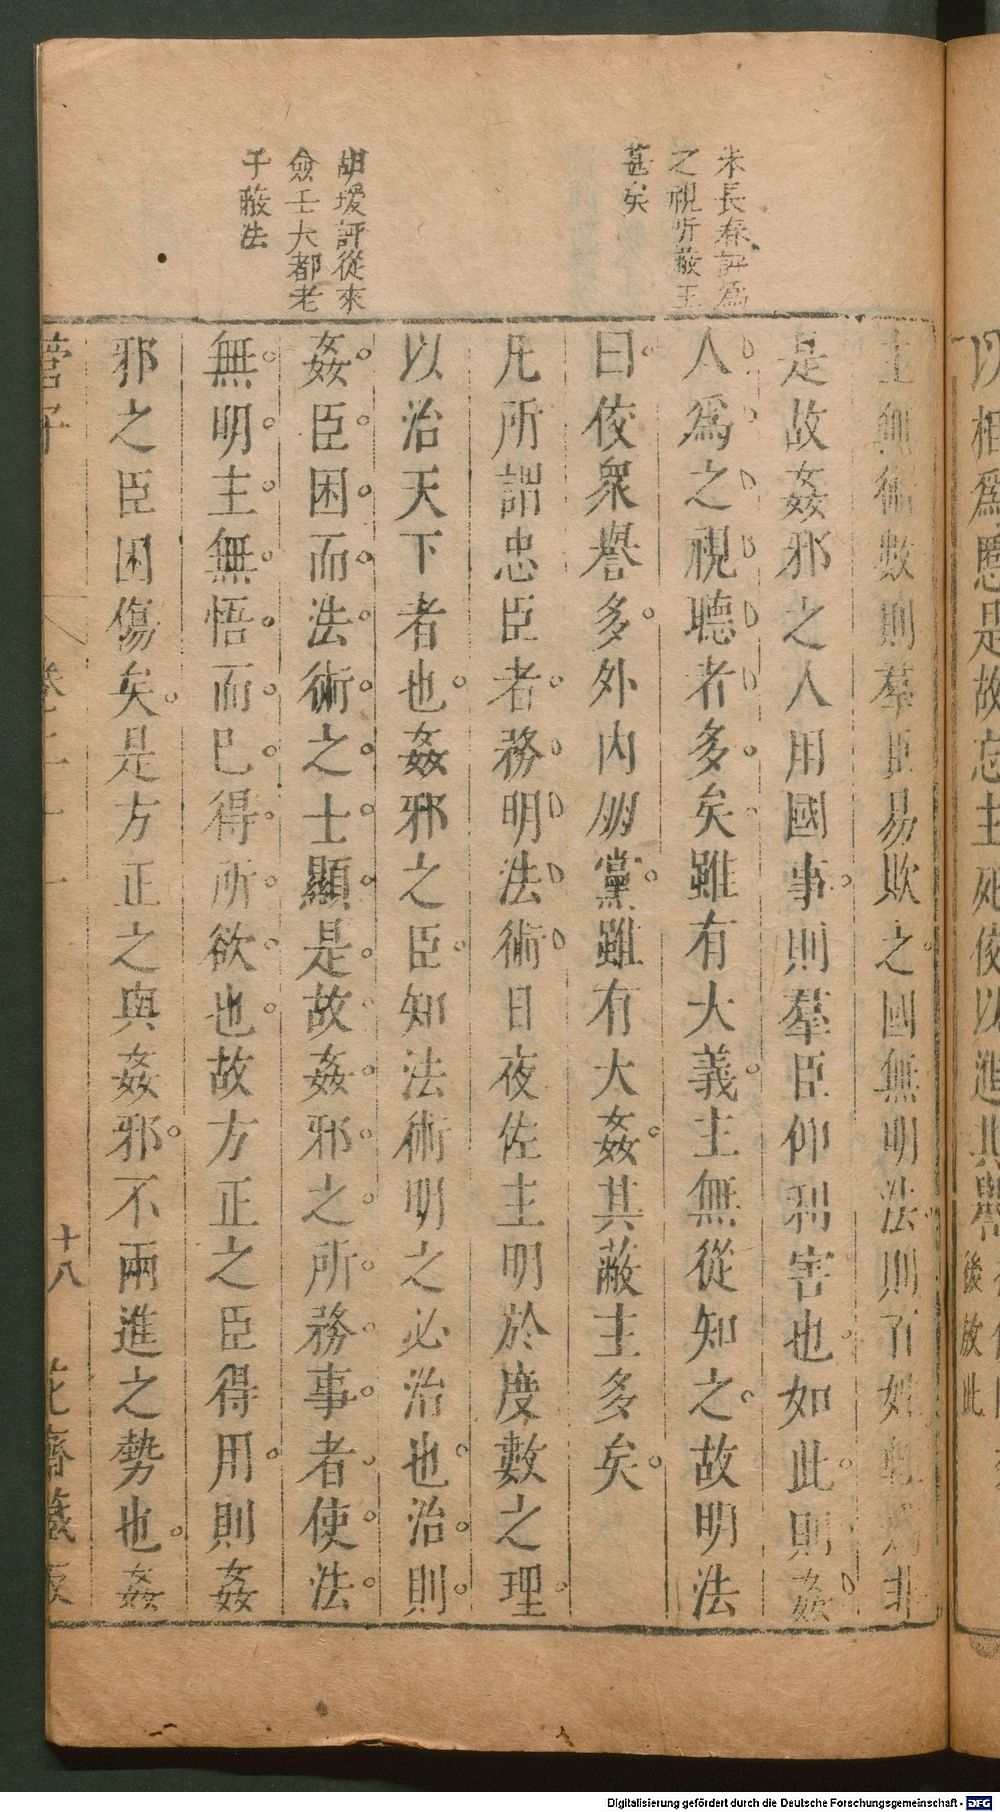 朱長春評爲
之視所蔽主
甚矣
胡瑗評從來
僉壬大都老
于蔽法
以相爲慝是故忘主死佼以進其譽
後放此
主無術數則羣臣易欺之國無明法則百姓輕爲非
是故姦邪之人用國事則羣臣仰利害也如此則姦
人爲之視聽者多矣雖有大義主無從知之故明法
曰佼衆譽多外內朋黨雖有大姦其蔽主多矣
凡所謂忠臣者務明法術日夜佐主明於度數之理
以治天下者也姦邪之臣知法術明之必治也治則
姦臣困而法術之士顯是故姦邪之所務事者使法
無明主無悟而已得所欲也故方正之臣得用則姦
邪之臣困傷矣是方正之與姦邪不兩進之勢也姦
管子 卷二十一 十八 花齋藏板
Digitalisierung gefördert durch die Deutsche Forschungsgemeinschaft - DFG